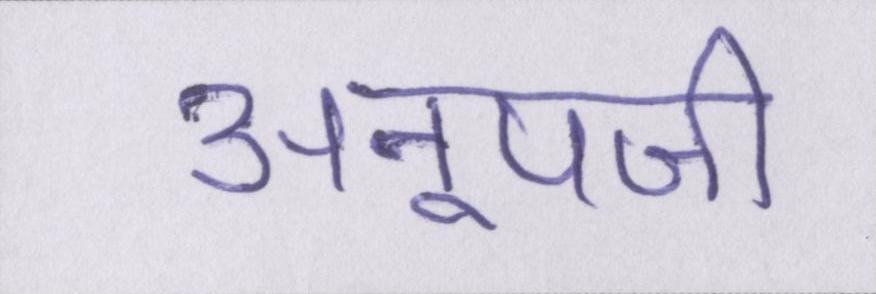 अनूपजी